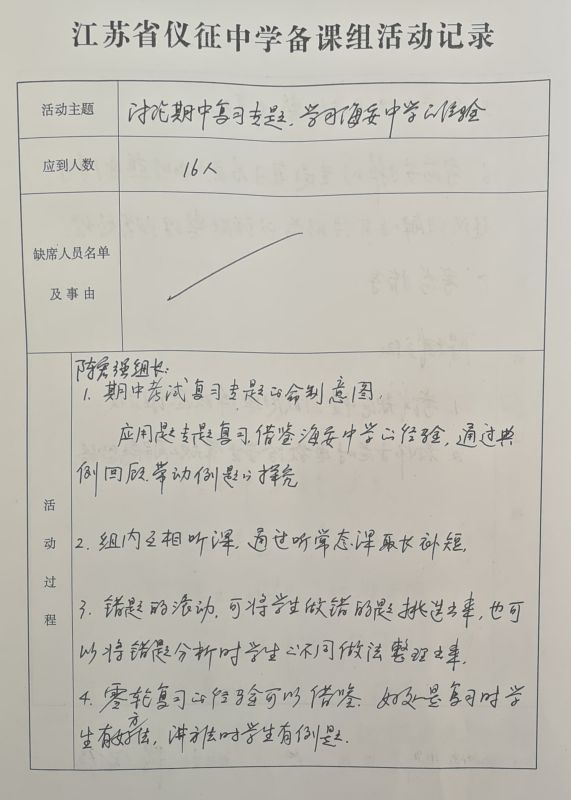 江苏省仪征中学备课组活动记录
活动主题 讨论期中复习专题、学习海安中学的经验
应到人数 16人
缺席人员名单
及事由
陈宏强组长:
1. 期中考试复习专题的命制意图
应用题专题复习,借鉴海安中学的经验,通过典
例回顾带动例题的探究
活动过程
2. 组内互相听课,通过听常态课取长补短,
3. 错题的滚动,可将学生做错的题挑选出来,也可
以将错题分析时学生的不同做法整理出来,
4. 零轮复习的经验可以借鉴、好处是复习时学
生有好方法,讲方法时学生有例题.